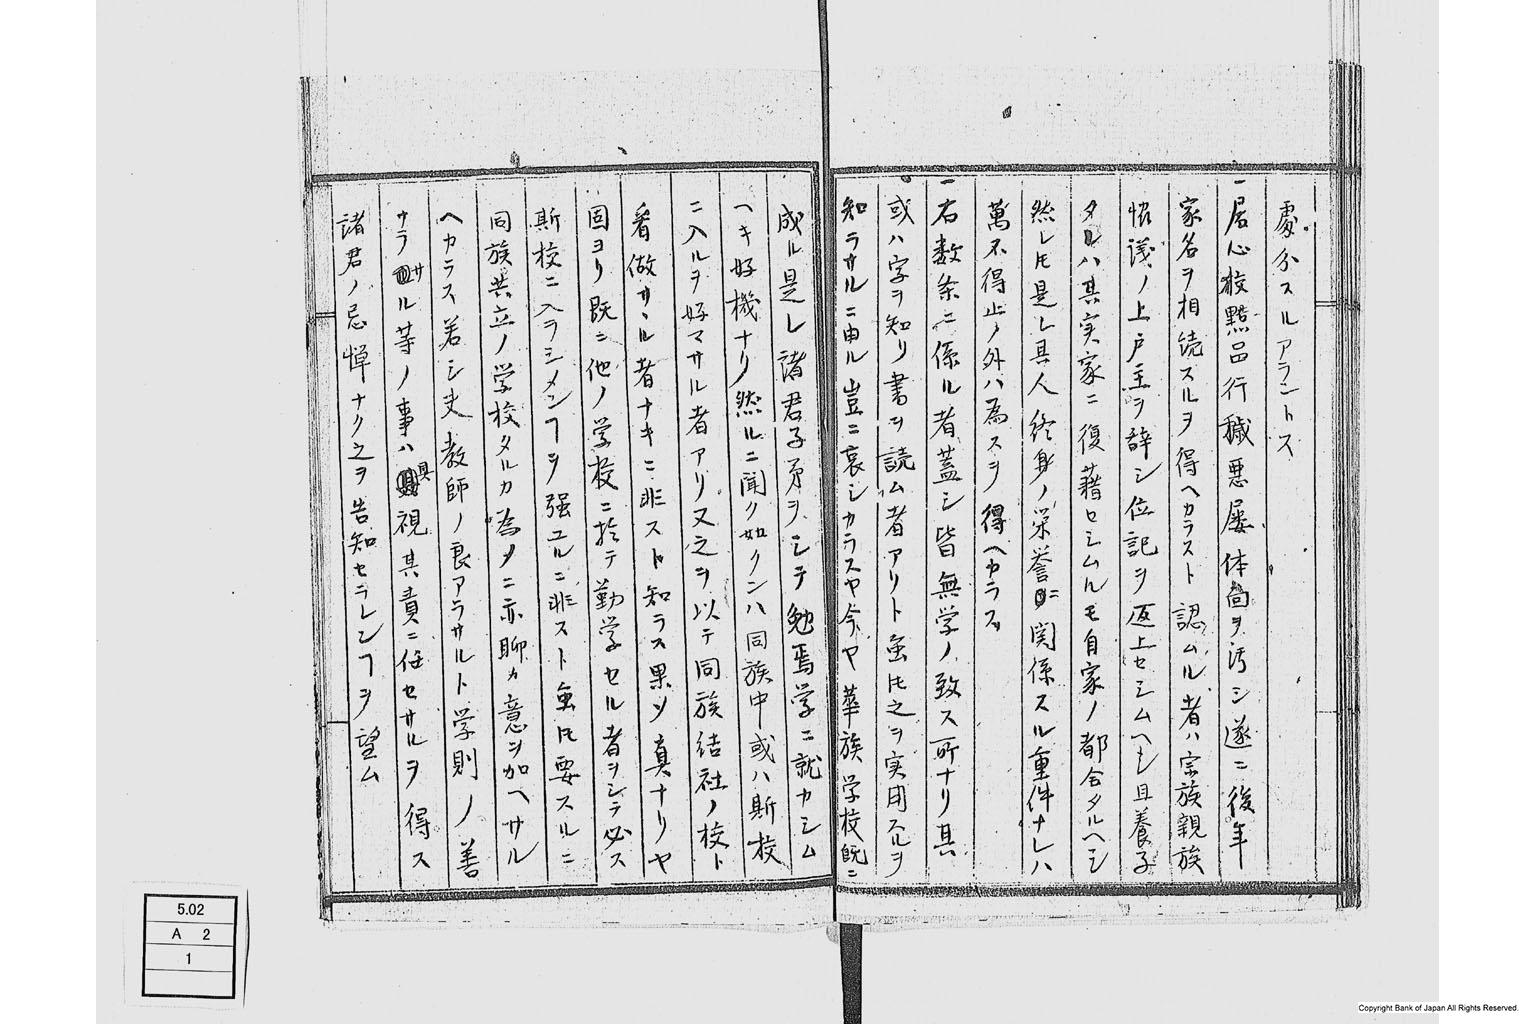 處分スルアラントス
一居心狡黠品行穢悪屡体面ヲ汚シ遂ニ後年
家名ヲ相続スルヲ得ヘカラスト認ムル者ハ宗族親族
協議ノ上戸主ヲ辞シ位記ヲ返上セシムヘシ且養子
タルハ其実家ニ復籍セシムルモ自家ノ都合タルヘシ
然レ𪜈是レ其人終身ノ栄誉ニ関係スル重件ナレハ
萬不得止ノ外ハ為スヲ得ヘカラス
一右数条ニ係ル者蓋シ皆無学ノ致ス所ナリ其
或ハ字ヲ知リ書ヲ読ム者アリト虽𪜈之ヲ実用スルヲ
知ラサルニ由ル豈ニ哀シカラスヤ今ヤ華族学校既ニ
成ル是レ諸君子弟ヲシテ勉焉学ニ就カシム
ヘキ好機ナリ然ルニ聞ク如クンハ同族中或ハ斯校
ニ入ルヲ好マサル者アリ又之ヲ以テ同族結社ノ校ト
看做サヽル者ナキニ非スト知ラス果ツ真ナリヤ
固ヨリ既ニ他ノ学校ニ於テ勤学セル者ヲシテ必ス
斯校ニ入ラシメンヿヲ強ユルニ非スト虽𪜈要スルニ
同族共立ノ学校タルカ為メニ亦聊カ意ヲ加ヘサル
ヘカラス若シ夫教師ノ良アラサルト学則ノ善
ナラサル等ノ事ハ具視其責ニ任セサルヲ得ス
諸君ノ忌憚ナク之ヲ告知セラレンヿヲ望ム
5.02
A 2
1
Copyright Bank of Japan All Rights Reserved.